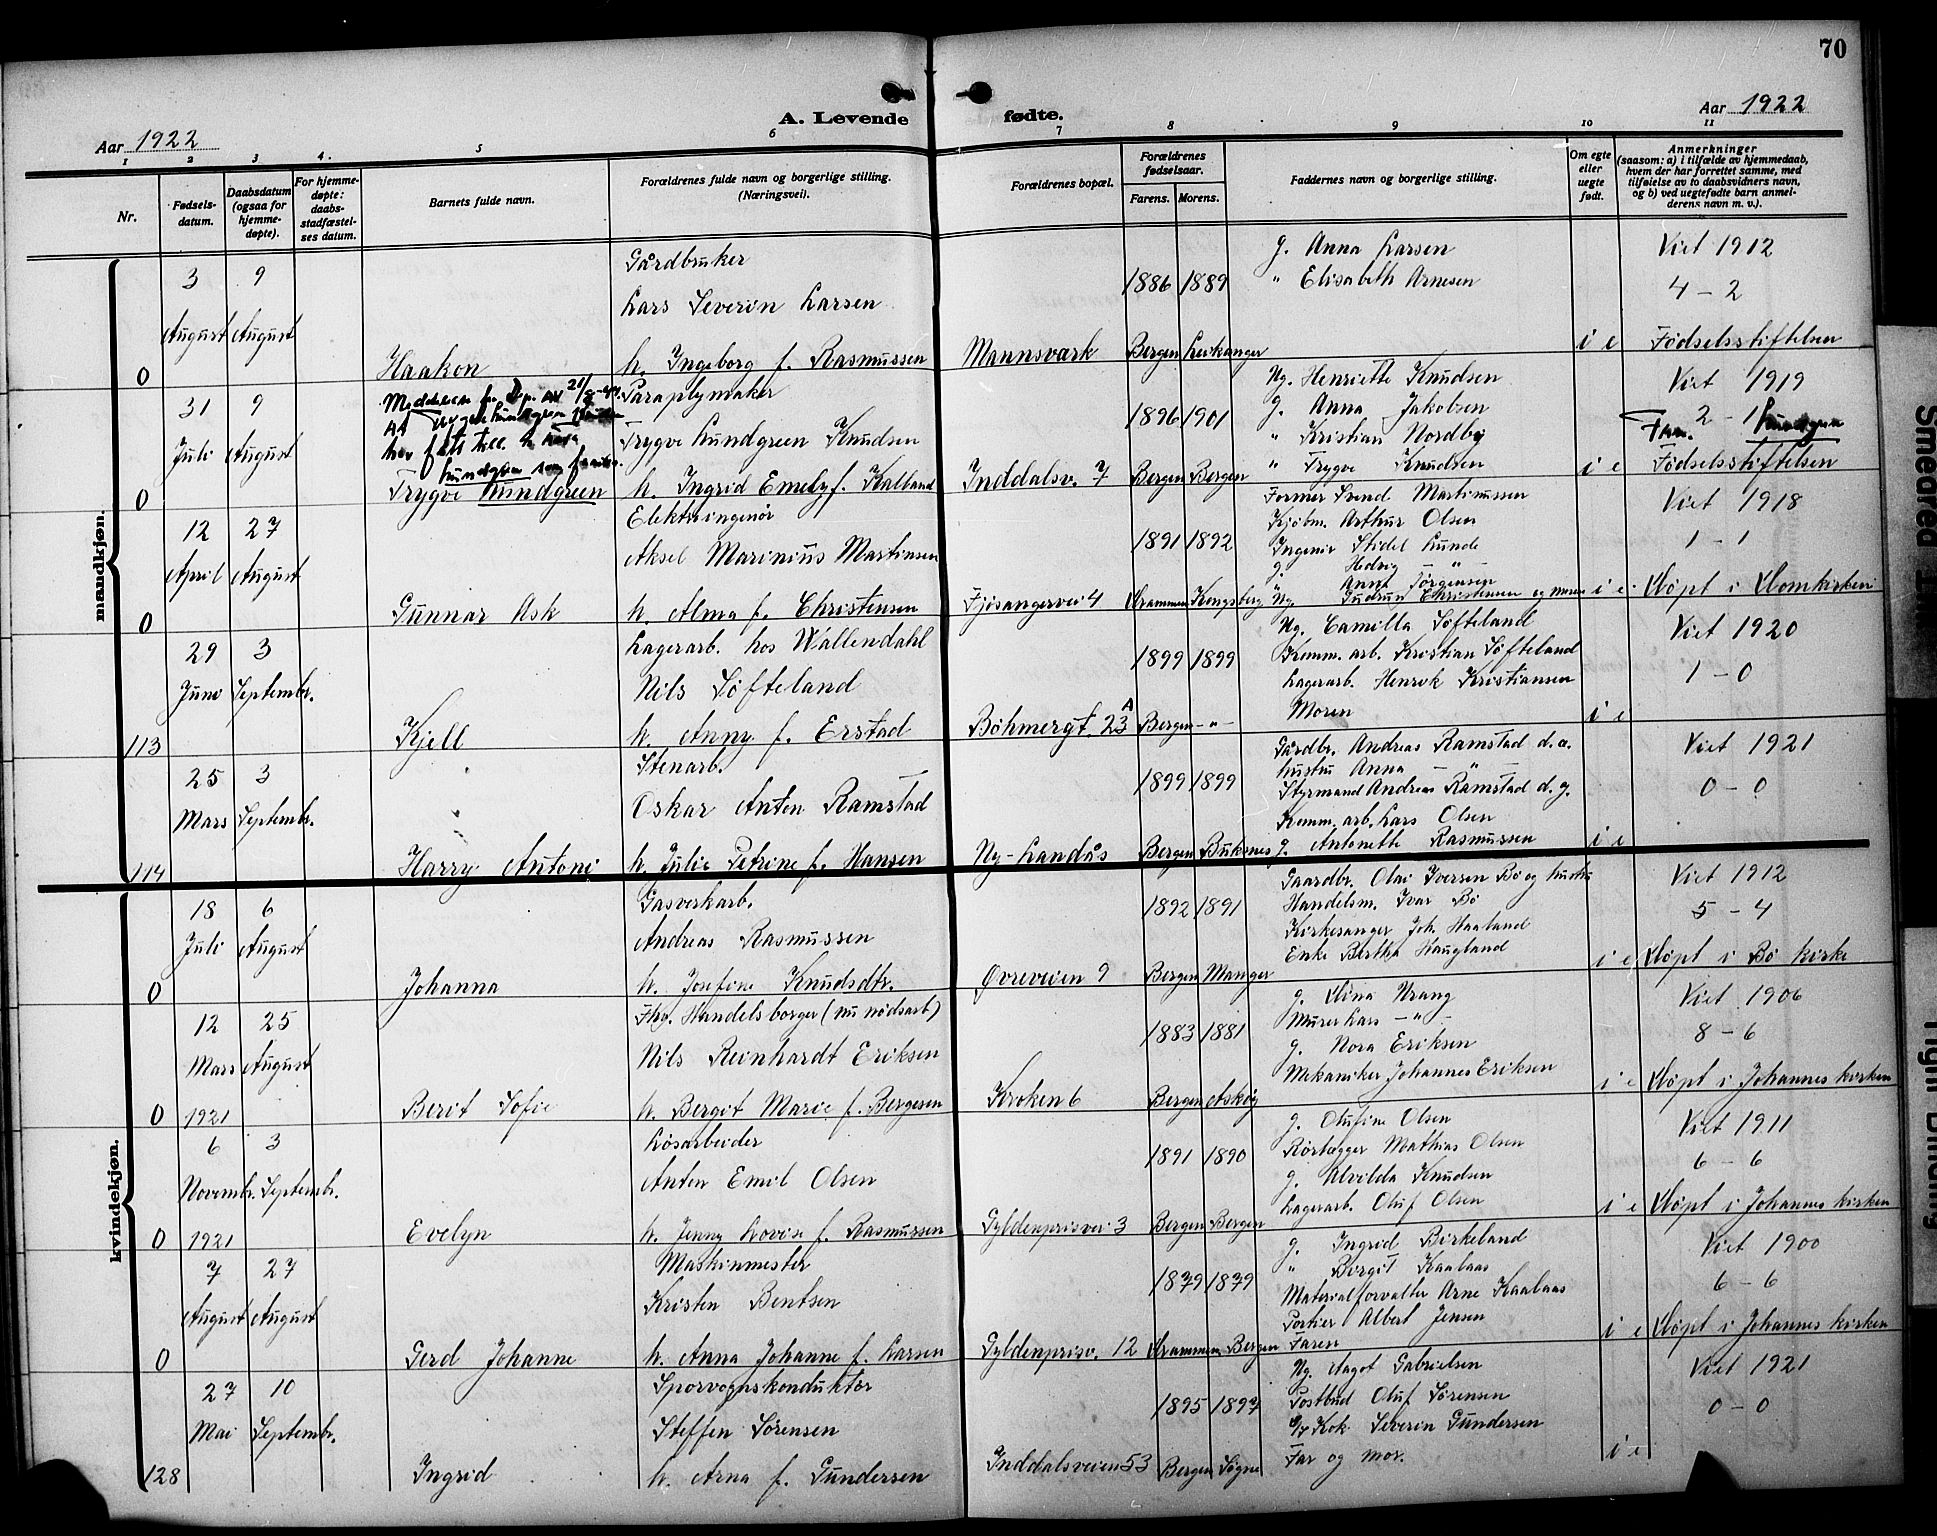 70
Aar 1922
A. Levende fødte.
Aar 1922
1 2 3 4. 5 6 7 8 9 10 11
Nr.
Fødsels-
datum.
Daabsdatum
(ogsaa for
hjemme-
døpte).
For hjemme-
døpte:
daabs-
stadfæstel-
ses datum.
Barnets fulde navn.
Forældrenes fulde navn og borgerlige stilling.
(Næringsvei).
Forældrenes bopæl.
Forældrenes
fødselsaar.
Farens. Morens.
Faddernes navn og borgerlige stilling.
Om egte
eller
uegte
født.
Anmerkninger
(saasom: a) i tilfælde av hjemmedaab,
hvem der har forrettet samme, med
tilføielse av to daabsvidners navn,
og b) ved uegtefødte barn anmel-
derens navn m. v.).
mandkjøn.
0
3 August
9 August
Haakon
Gårdbruker
Lars Severin Larsen
h. Ingeborg f. Rasmussen
Mannsverk
1886 1889
Bergen Leikanger
g. Anna Larsen
" Elisabeth Arnesen
i e
Viet 1912
4 - 2
Fødselsstiftelsen
0
31 Juli
9 August
har fått till. å
Lundgren som
Trygve Lundgreen
Paraplymaker
Trygve Lundgreen Knudsen
h. Ingrid Emely f. Kalland
Inddalsv. 7
1896 1901
Bergen Bergen
Ug. Henriette Knudsen
g. Anna Jakobsen
" Kristian Nordby
" Trygve Knudsen
i e
Viet 1919
2 - 1
Fam. Lundgren
Fødselsstiftelsen
0
12 April
27 August
Gunnar Ask
Elektroingeniør
Aksel Marinius Martinsen
h. Alma f. Christensen
Fjøsangervei 4
1891 1892
Drammen Kongsberg
Former Svend Martinussen
Kjøbm. Arthur Olsen
Ingeniør Stidel Lunde
g. Hedvig - " -
" Anna Jørgensen
Ug. Gudrun Christensen og moren
i e
Viet 1918
1 - 1
Døpt i Domkirken
113
29 Juni
3 Septembr.
Kjell
Lagerarb. hos Wallendahl
Nils Søfteland
h. Anny f. Erstad
Böhmergt 23 A
1899 1899
Bergen - " -
Ug. Camilla Søfteland
Komm. arb. Kristian Søfteland
Lagerarb. Henrik Kristiansen
Moren
i e
Viet 1920
1 - 0
114
25 Mars
3 Septembr.
Harry Antoni
Stenarb.
Oskar Anton Ramstad
h. Julie Petrine f. Hansen
Ny-Landås
1899 1899
Bergen Buksnes
Gårdbr. Andreas Ramstad d. æ.
hustru Anna - " -
Styrmand Andreas Ramstad d. y.
Komm. arb. Lars Olsen
g. Antonette Rasmussen
i e
Viet 1921
0 - 0
kvindekjøn.
0
18 Juli
6 August
Johanna
Gasverkarb.
Andreas Rasmussen
h. Josefine Knudsdtr.
Øvreveien 9
1892 1891
Bergen Manger
Gaardbr. Olai Iversen Bø og hustru
Handelsm. Ivar Bø
Kirkesanger Joh. Haaland
Enke Bertha Haugland
i e
Viet 1912
5 - 4
Døpt i Bø kirke
0
12 Mars 1921
25 August
Berit Sofie
Fhv. Handelsborger (nu nødsarb)
Nils Reinhardt Eriksen
h. Bergit Marie f. Bergesen
Kroken 6
1883 1881
Bergen Askøy
g. Dina Urang
Murer Lars - " -
g. Nora Eriksen
Mekaniker Johannes Eriksen
i e
Viet 1906
8 - 6
Døpt i Johannes kirken
0
6 Novembr. 1921
3 Septembr.
Evelyn
Løsarbeider
Anton Emil Olsen
h. Jenny Lovise f. Rasmussen
Gyldenprisvei 3
1891 1890
Bergen Bergen
g. Olufine Olsen
Rørlægger Mathias Olsen
g. Alvilda Knudsen
Lagerarb. Oluf Olsen
i e
Viet 1911
6 - 6
Døpt i Johannes kirken
0
7 August
27 August
Gerd Johanne
Maskinmester
Kristen Bentsen
h. Anna Johanne f. Larsen
Gyldenprisv. 12
1879 1879
Drammen Bergen
g. Ingrid Birkeland
" Birgit Kaalaas
Materialforvalter Arne Kaalaas
Portier Albert Jensen
Faren
i e
Viet 1900
6 - 6
Døpt i Johannes kirken
128
27 Mai
10 Septembr.
Ingrid
Sporvognskonduktør
Steffen Sørensen
h. Arna f. Gundersen
Inddalsveien 53
1895 1897
Bergen Søgne
Ug. Aagot Gabrielsen
Postbud Oluf Sørensen
Kok Severin Gundersen
Far og mor.
i e
Viet 1921
0 - 0